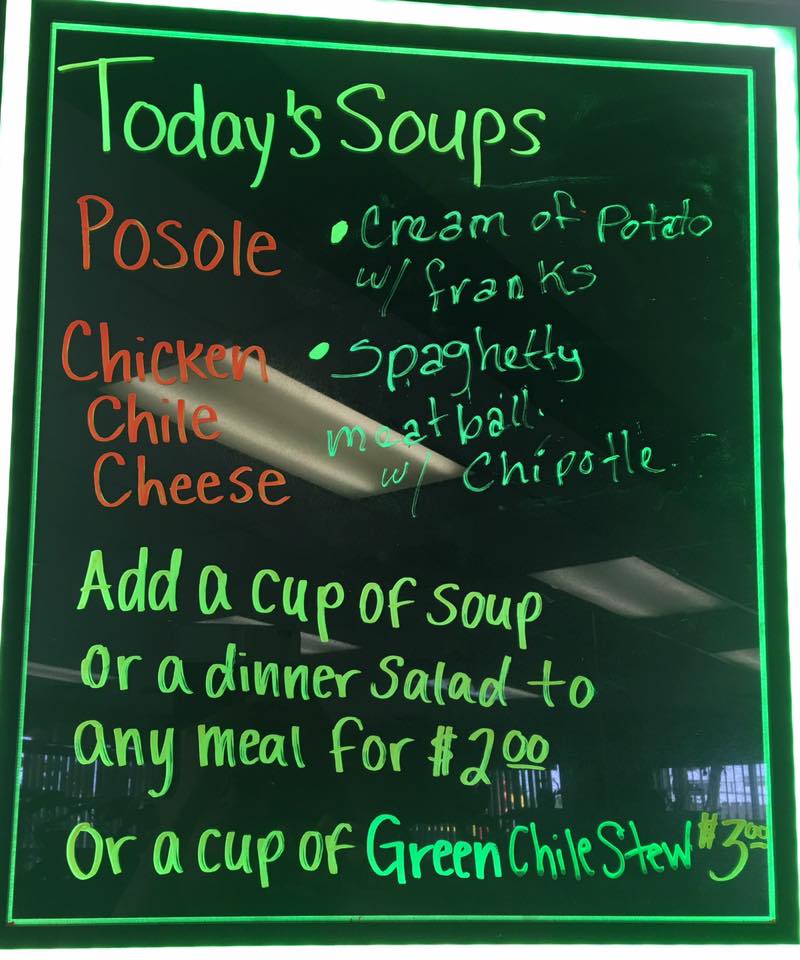 Today's Soups
Posole
Chicken
Chile
Cheese
• Cream of Potato
w/ franks
• Spaghetty
meatball.
w/ Chipotle.
Add a cup of soup
or a dinner salad to
any meal for $2.00
Or a cup of Green Chile Stew $3.00